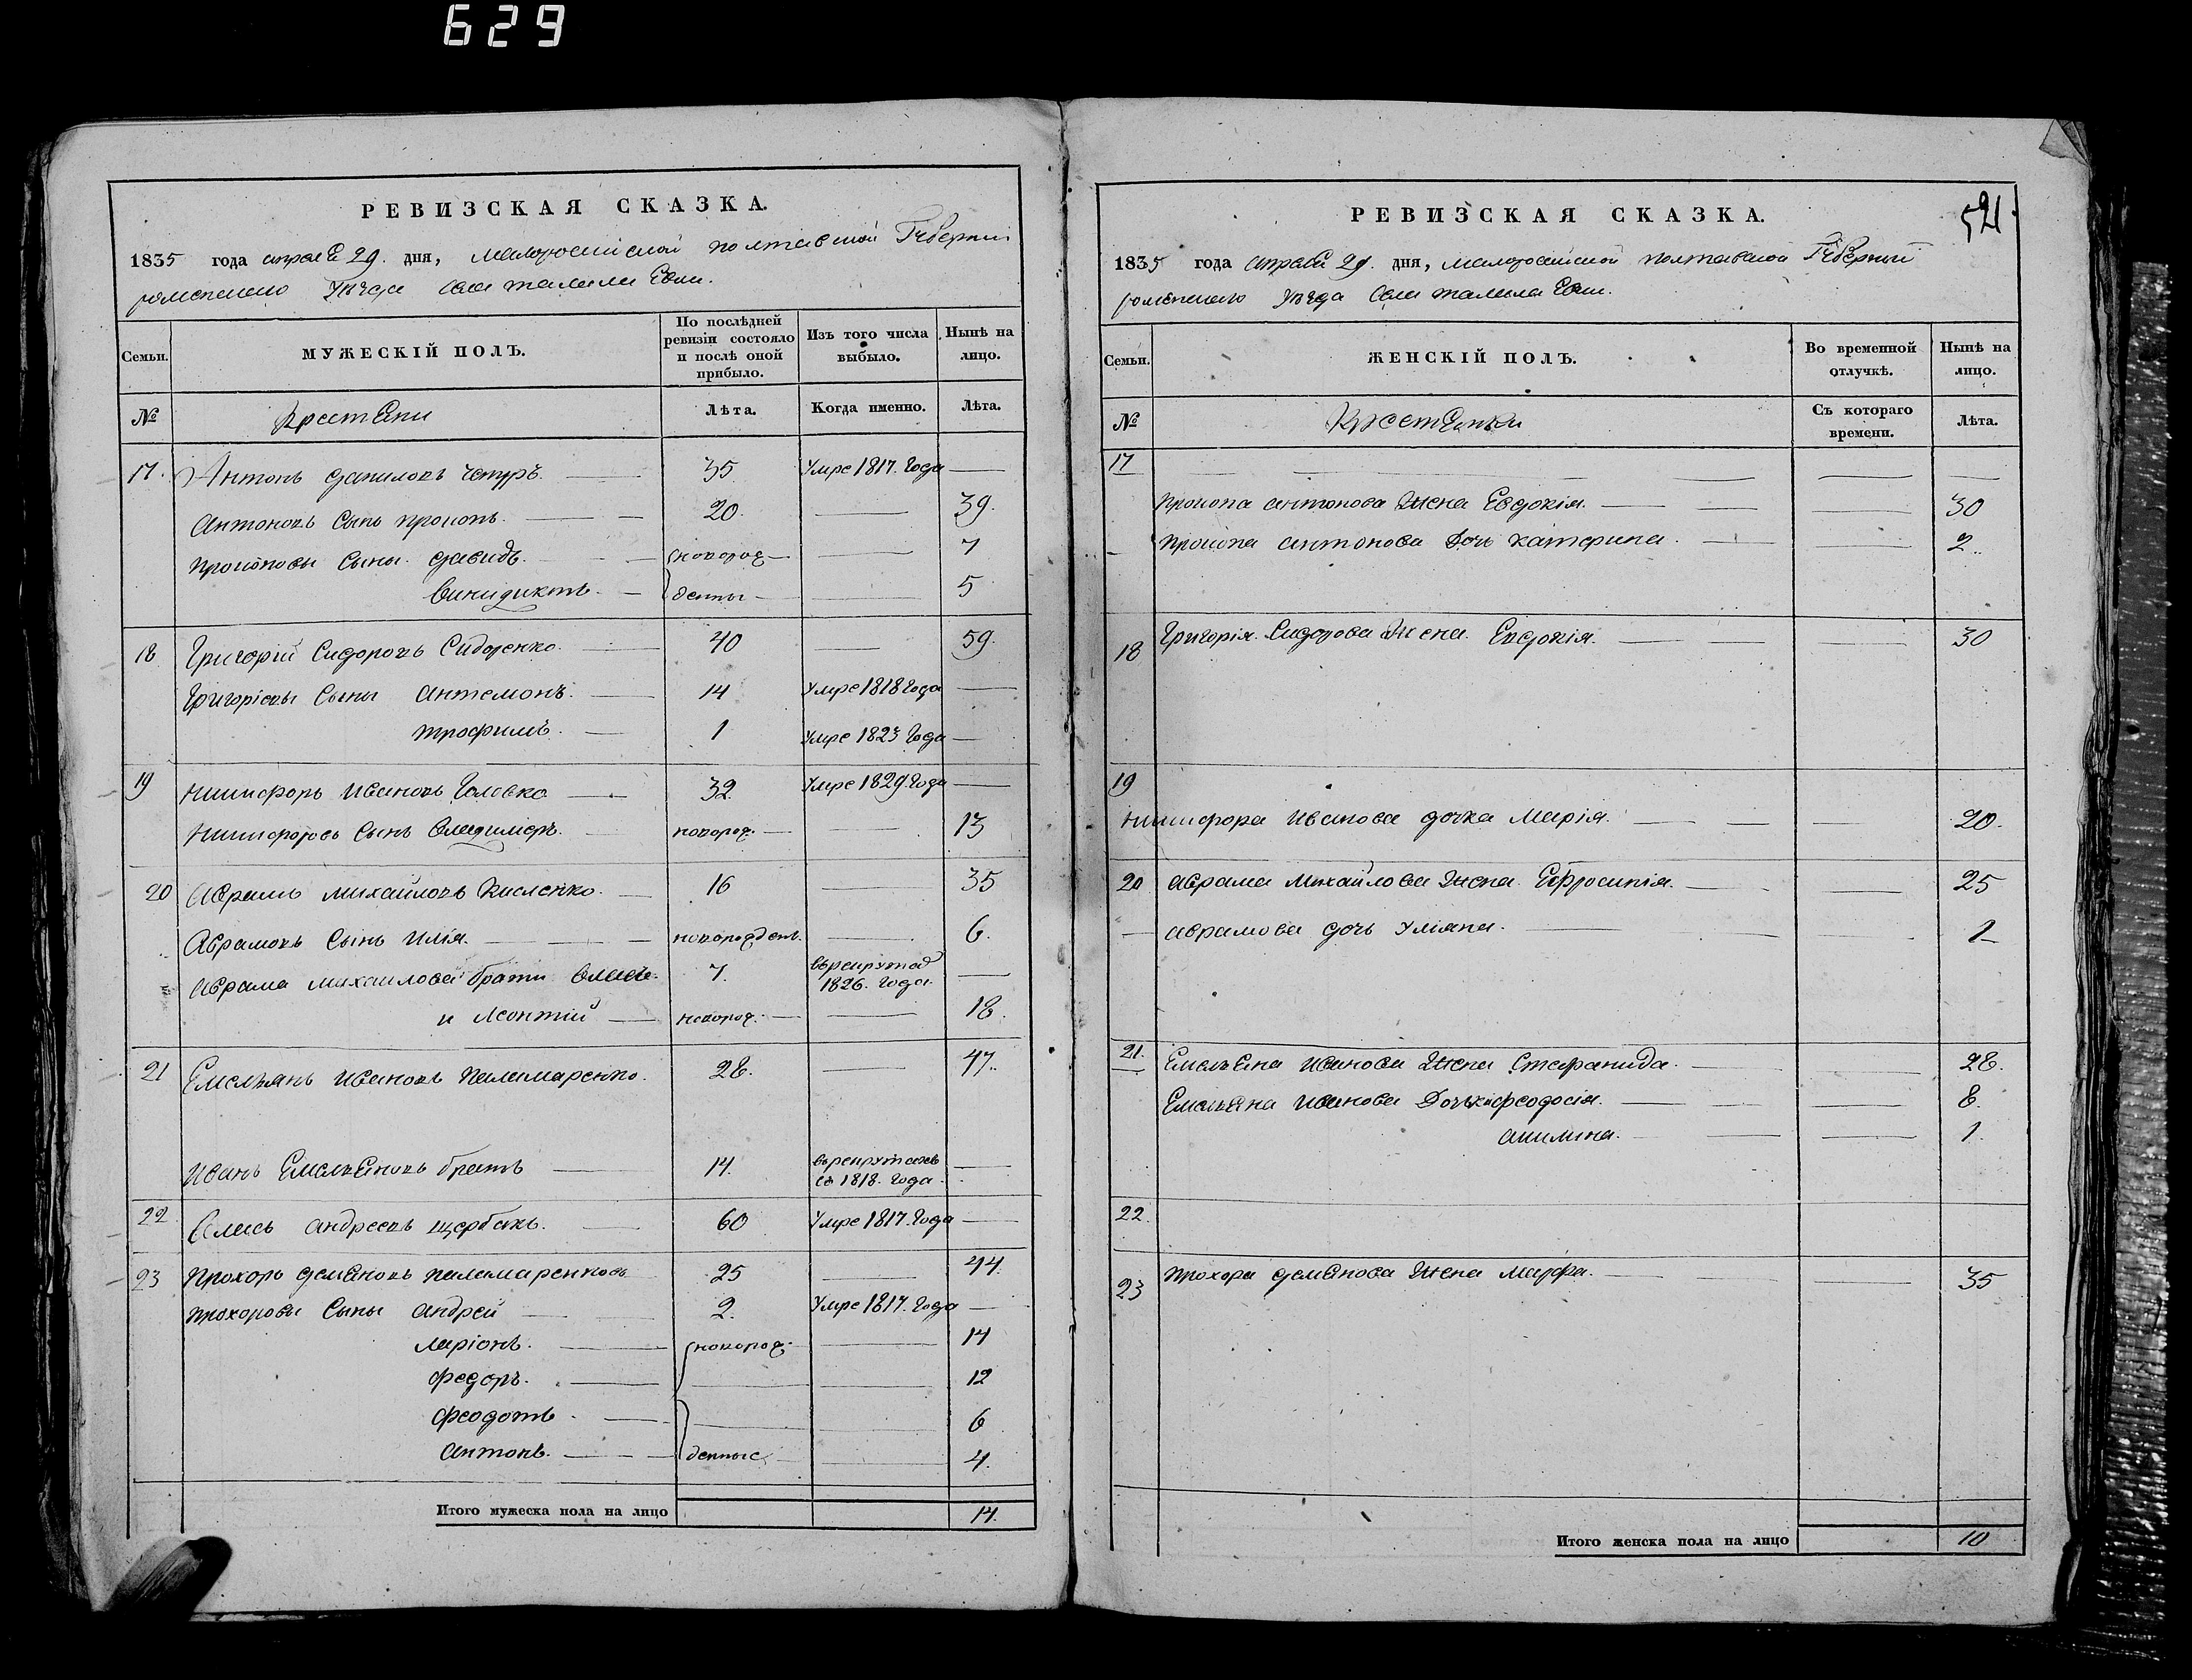 629
РЕВИЗСКАЯ СКАЗКА.
1835 года апреля 29. дня, Малороссийской Полтавской Губернии
роменского уѣзда Села
Семьи.
МУЖЕСКІЙ ПОЛЪ.
По послѣдней ревизіи состояло и послѣ оной прибыло.
Изъ того числа выбыло.
Нынѣ на лицо.
№
Крестяни
Лѣта.
Когда именно.
Лѣта.
17. Антонъ Даниловъ — 35 Умре 1817. Года —
Антоновъ Сынъ Прокопъ. — 20. — 39.
Прокоповы Сыны. Давидъ. — новорож — 7
Винидиктъ. — денны — 5
18 Григорій Сидоровъ Сидоренко. — 40 — 59.
Григоріевы Сыны Антемонъ. — 14 Умре 1818 Года —
Трофимъ. — 1 Умре 1823 Года —
19 Никифоръ Ивановъ Головко — 32. Умре 1829 Года —
Никифоровъ Сынъ Владимѣръ. — новорож. — 13
20 Аврамъ Михайловъ Кисленко. — 16 — 35
Аврамовъ Сынъ Илія. — новорожденъ. — 6.
Аврама Михайлова брати Власъ. 7. въ рекрутах 1826. Года. —
и Леонтій — новорож. — 18.
21 Емельянъ Ивановъ Паламаренко. 28. — 47.
Иванъ Емельяновъ братъ — 14. въ рекрутахъ съ 1818. Года. —
22 Власъ Андреевъ Щербакъ. — 60 Умре 1817. Года —
23 Прохоръ Демяновъ Паламаренковъ 25 — 44.
Прохоровы Сыны Андрей — 2. Умре 1817. Года —
Ларіонъ. — новорож — 14
Федоръ. — 12
Феодотъ — 6
Антонъ. — денные — 4.
Итого мужеска пола на лицо 14.
521.
РЕВИЗСКАЯ СКАЗКА.
1835 года апреля 29. дня, Малороссийской Полтавской Губернии
роменского уѣзда Села
Семьи.
ЖЕНСКІЙ ПОЛЪ.
Во временной отлучкѣ.
Нынѣ на лицо.
№
Крестянки
Съ котораго времени.
Лѣта.
17
Прокопа Антонова Жена Евдокія. — 30
Прокопа Антонова Дочь Катерина. — 2.
18 Григорія Сидорова Жена Евдокія. — 30
19
Никифора Иванова дочка Марія. — 20.
20 Аврама Михайлова Жена Ефросинія. — 25
Аврамова дочь Уліяна. — 1
21. Емельяна Иванова Жена Стефанида. — 28.
Емельяна Иванова Дочьки Феодосія. — 8.
Акилина. — 1.
22.
23 Прохора Демянова Жена Марфа. — 35
Итого женска пола на лицо 10